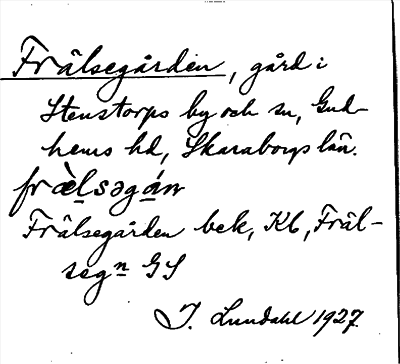 Frälsegården, gård i
Stenstorps by och sn, Gud-
hems hd, Skaraborgs län.
fræ̀lsəgán
Frälsegården bek, Kb, Fräl-
segn GS
J. Lundahl 1927.